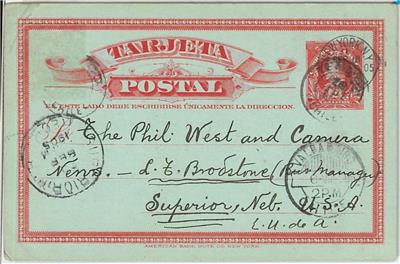 TARJETA
POSTAL
EN ESTE LADO DEBE ESCRIBIRSE ÚNICAMENTE LA DIRECCION.
The Phil West and Camera
News. - L. E. Brodstone (Bus. Manager)
Superior, Neb. U.S.A.
E.U. de A.
AMERICAN BANK NOTE CO. NEW YORK
YORK N.Y.
05
CHILE
1905
2 PM